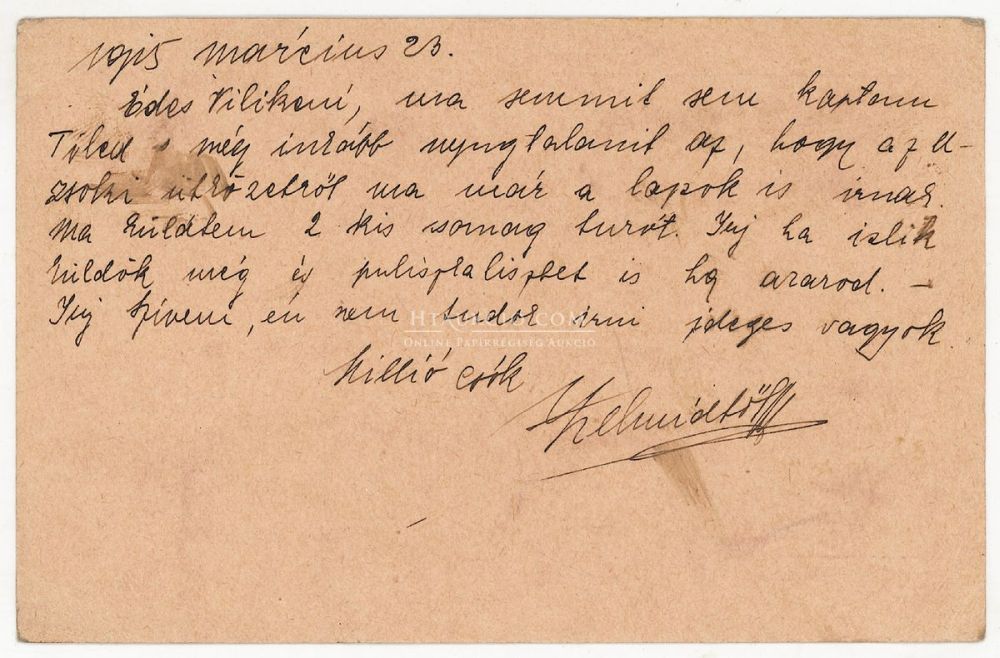 1915 március 23.
Édes Vilikém, ma semmit sem kaptam
Tőled s még inkább nyugtalanit az, hogy az U-
zsoki ütközetről ma már a lapok is irnak.
Ma küldtem 2 kis csomag turót. Irj ha izlik
küldök még és puliszkalisztet is ha akarod. –
Irj szivem, én nem tudok irni ideges vagyok
HTKEREK.COM
ONLINE PAPÍRRÉGISÉG AUKCIÓ
Millió csók